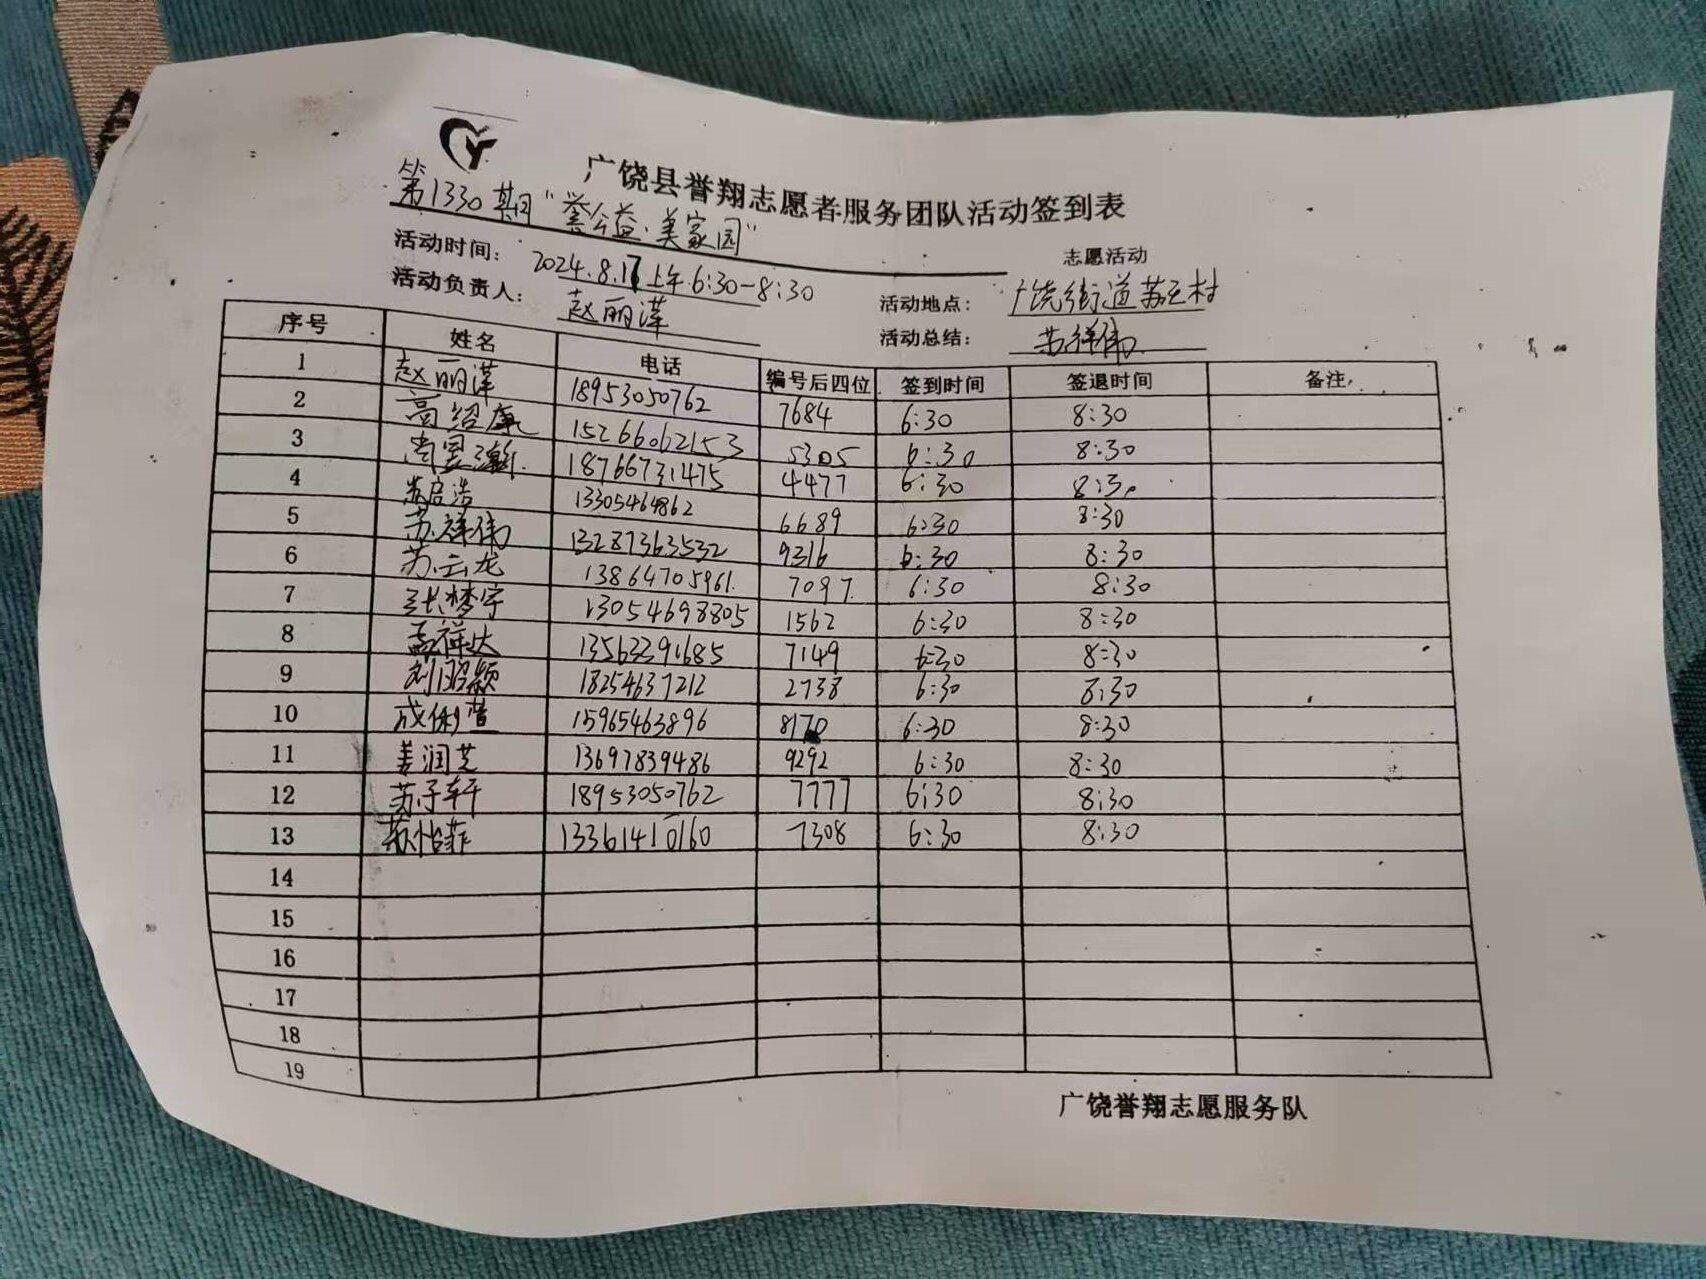 广饶县誉翔志愿者服务团队活动签到表
第1330期"誉公益·美家园" 志愿活动
活动时间: 2024.8.17上午6:30-8:30 活动地点: 广饶街道苏王村
活动负责人: 赵丽萍 活动总结: 苏祥伟
序号 姓名 电话 编号后四位 签到时间 签退时间 备注
1 赵丽萍 18953050762 7684 6:30 8:30
2 高绍康 15266062153 5305 6:30 8:30
3 18766731475 4477 6:30 8:30
4 苏启浩 13305464862 6689 6:30 8:30
5 苏祥伟 13287363532 9316 6:30 8:30
6 苏云龙 13864705961 7097 6:30 8:30
7 张梦宇 13054698805 1562 6:30 8:30
8 孟祥达 13563391685 7149 6:30 8:30
9 刘昭颖 18254637212 2738 6:30 8:30
10 成俐萱 15965463896 8170 6:30 8:30
11 姜润芝 13697839486 9292 6:30 8:30
12 苏子轩 18953050762 7777 6:30 8:30
13 苏怡菲 13361410160 7308 6:30 8:30
14
15
16
17
18
19
广饶誉翔志愿服务队